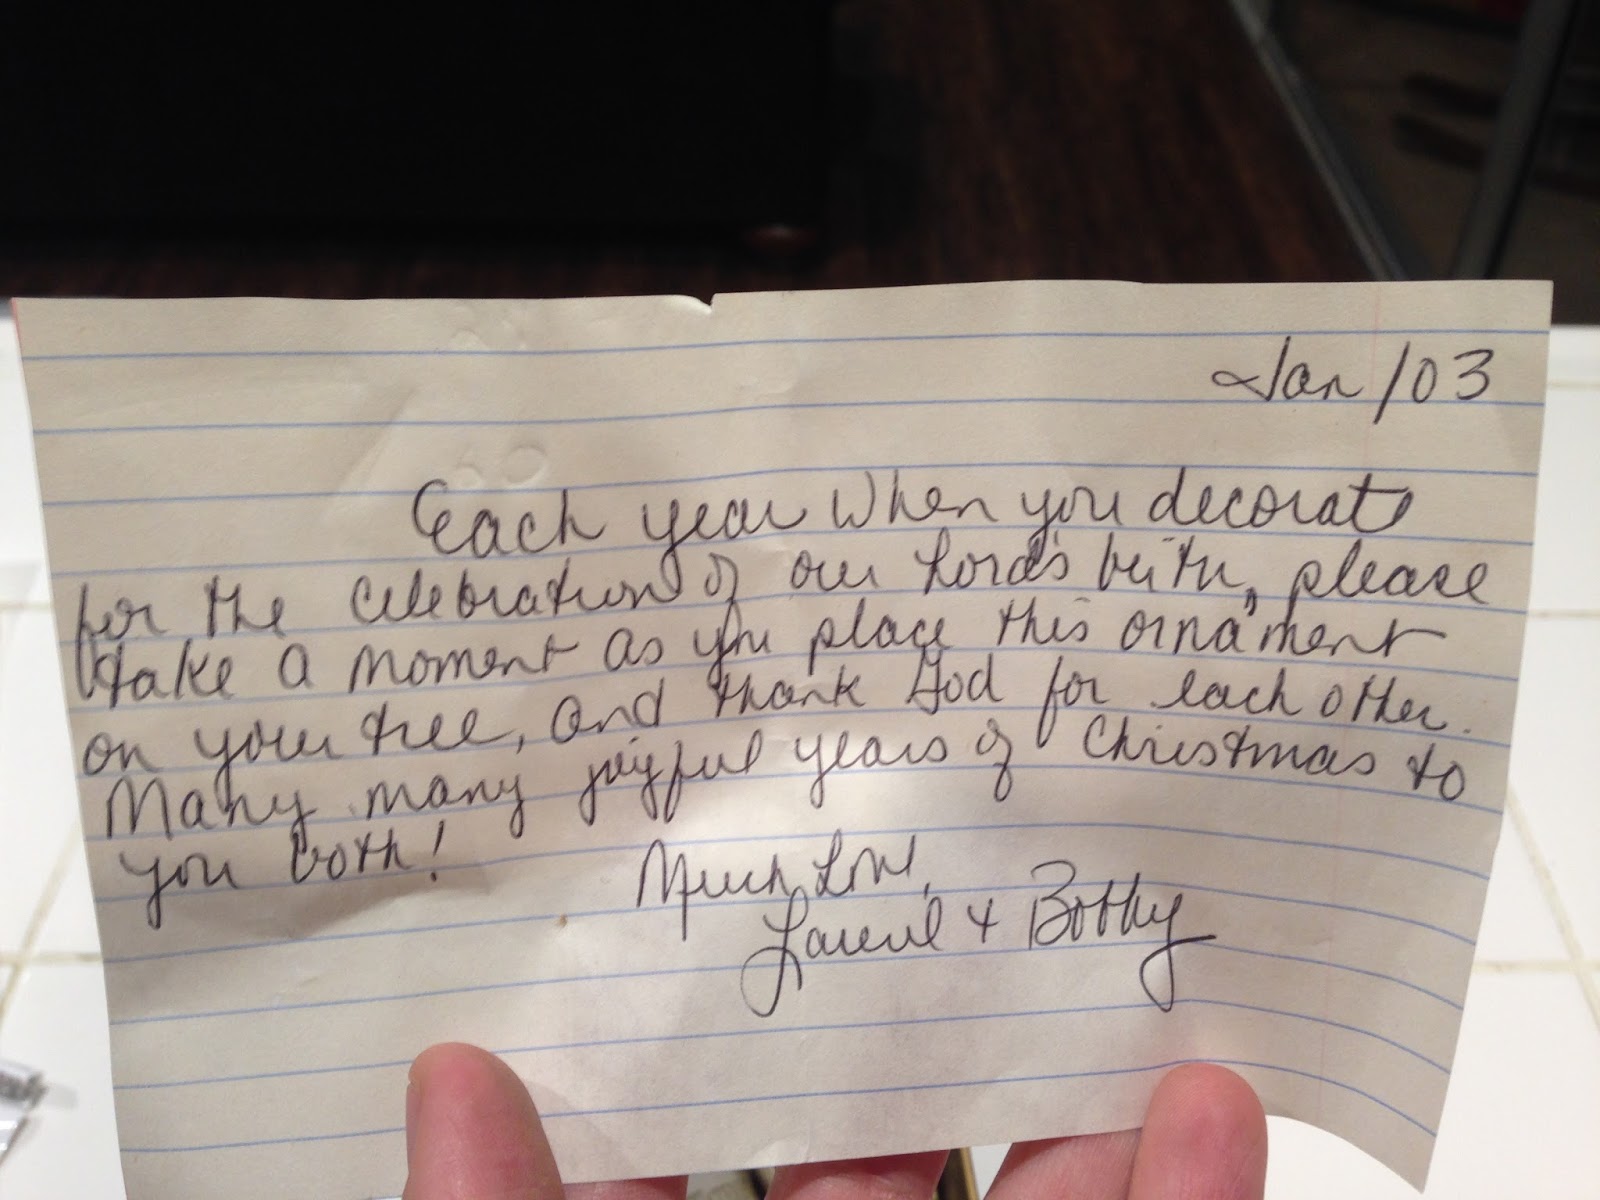 Jan /03
Each year when you decorate
for the celebration of our Lord's birth, please
take a moment as you place this ornament
on your tree, and thank God for each other.
Many many joyful years of Christmas to
you both!
Much Love,
& Bobby